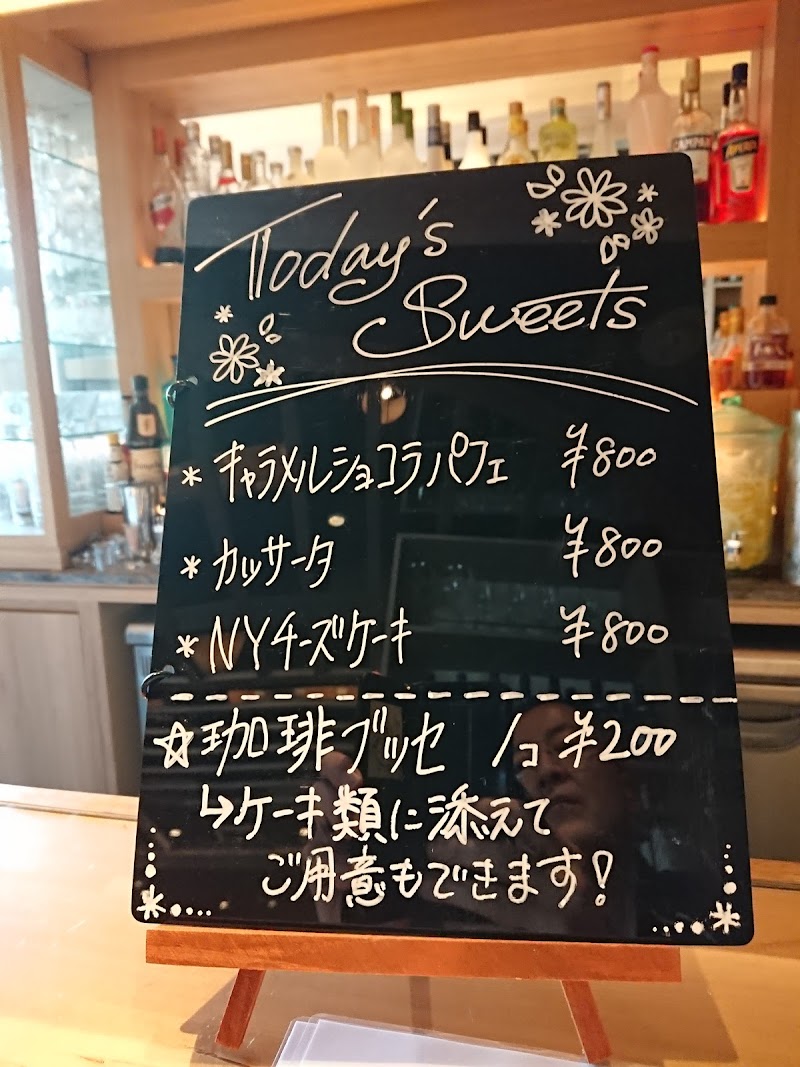 Today's
Sweets
* キャラメルショコラパフェ ¥800
* カッサータ ¥800
* NYチーズケーキ ¥800
☆珈琲ブッセ 1コ ¥200
↳ケーキ類に添えて
ご用意もできます!
CAMPARI
APEROL